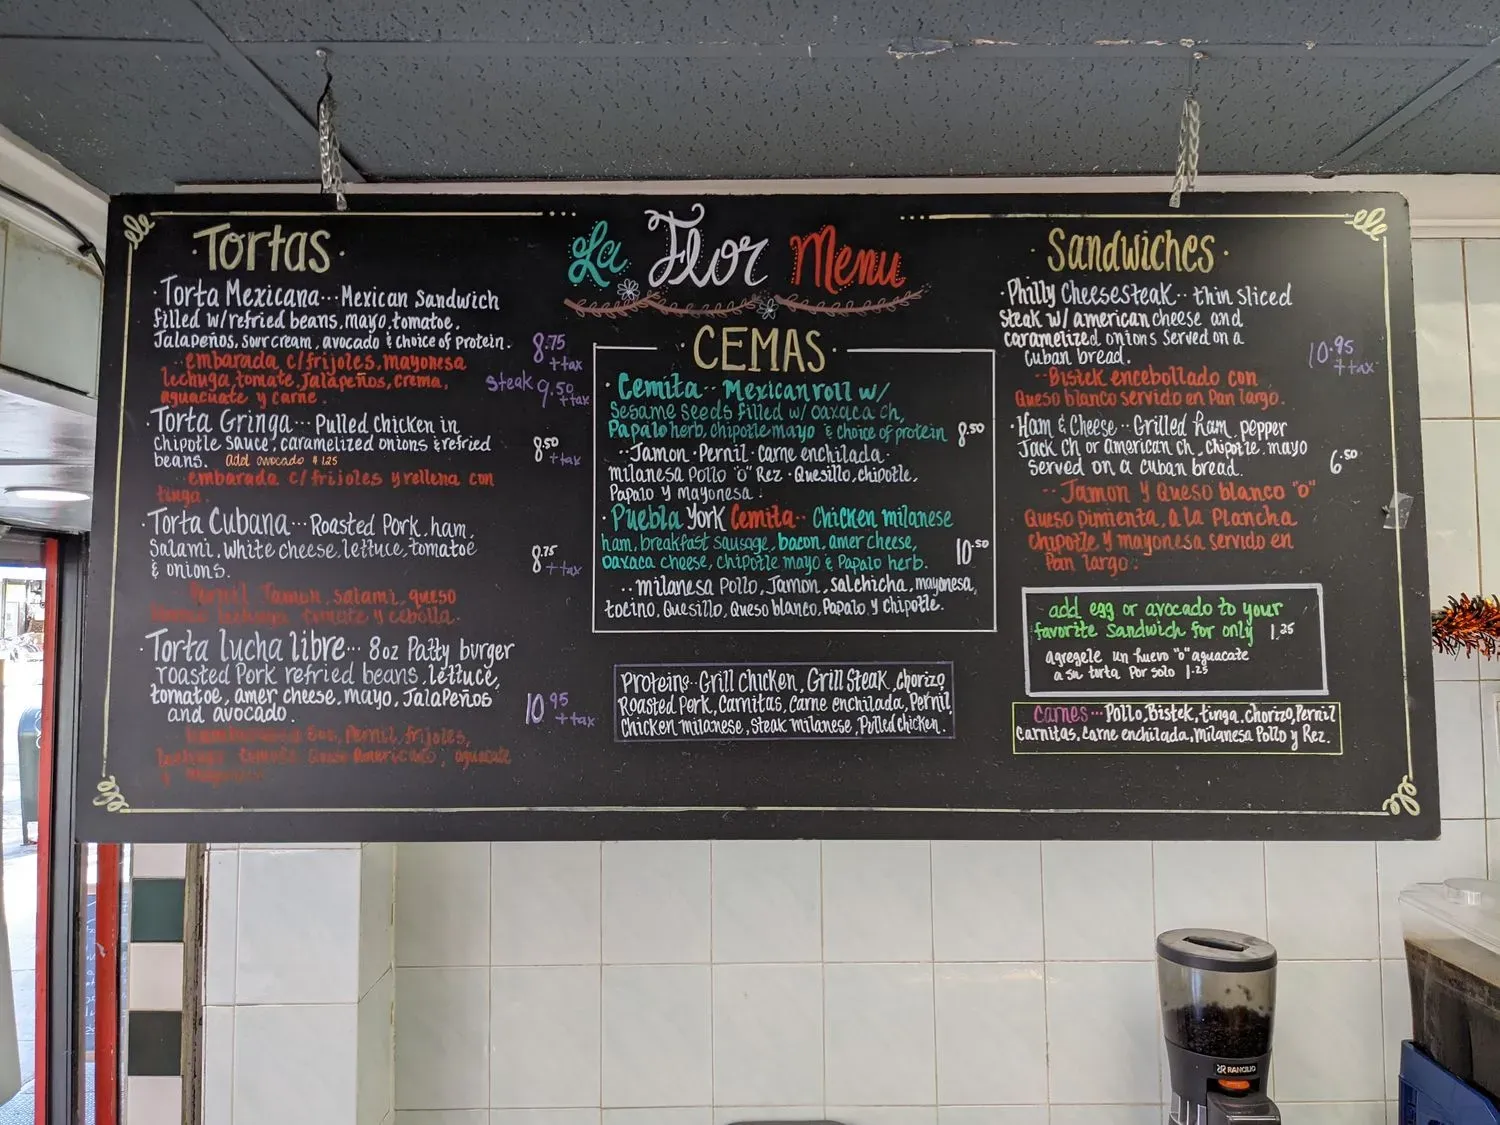 La Flor Menu
Tortas
Torta Mexicana... Mexican Sandwich
filled w/refried beans, mayo, tomatoe,
Jalapeños, sour cream, avocado & choice of protein.
8.75
+tax
..embarada c/frijoles, mayonesa
lechuga, tomate, Jalapeños, crema,
aguacuate y carne.
Steak 9.50
+tax
Torta Gringa... Pulled Chicken in
chipotle sauce, caramelized onions & refried
beans. add avocado $1.25
8.50
+tax
..embarada c/frijoles y rellena con
tinga.
Torta Cubana... Roasted Pork, ham,
Salami, White cheese, lettuce, tomatoe
& onions.
8.75
+tax
Pernil Jamon, salami, queso
lechuga tomate y cebolla.
Torta lucha libre... 8oz Patty burger
roasted Pork refried beans, lettuce,
tomatoe, amer cheese, mayo, Jalapeños
and avocado.
10.95
+tax
8oz, Pernil, frijoles,
tomate Queso Americano, aguacate
y
CEMAS
Cemita.. Mexican roll w/
Sesame seeds filled w/ oaxaca ch,
Papalo herb, chipotle mayo & choice of protein
8.50
..Jamon · Pernil · carne enchilada·
milanesa Pollo "o" Rez · Quesillo, chipotle,
Papalo y mayonesa.
Puebla York Cemita.. Chicken milanese
ham, breakfast sausage, bacon, amer cheese,
oaxaca cheese, chipotle mayo & Papalo herb.
10.50
..milanesa Pollo, Jamon, salchicha, mayonesa,
tocino, Quesillo, Queso blanco, Papalo y Chipotle.
Proteins.. Grill Chicken, Grill Steak, chorizo
Roasted Pork, Carnitas, Carne enchilada, Pernil
Chicken milanese, Steak milanese, Pulled chicken.
Sandwiches
Philly Cheesesteak.. thin sliced
Steak w/ american cheese and
caramelized onions Served on a
Cuban bread.
10.95
+tax
..Bistek encebollado con
Queso blanco servido en Pan largo.
Ham & Cheese.. Grilled ham, pepper
Jack ch or american ch, chipotle mayo
served on a cuban bread.
6.50
..Jamon y Queso blanco "o"
Queso pimienta, a la Plancha
chipotle y mayonesa servido en
Pan largo.
add egg or avocado to your
favorite sandwich for only 1.25
agregele un huevo "o" aguacate
a su torta Por solo 1.25
Carnes... Pollo, Bistek, tinga, chorizo, Pernil
Carnitas, Carne enchilada, Milanesa Pollo y Rez.
RANCILIO